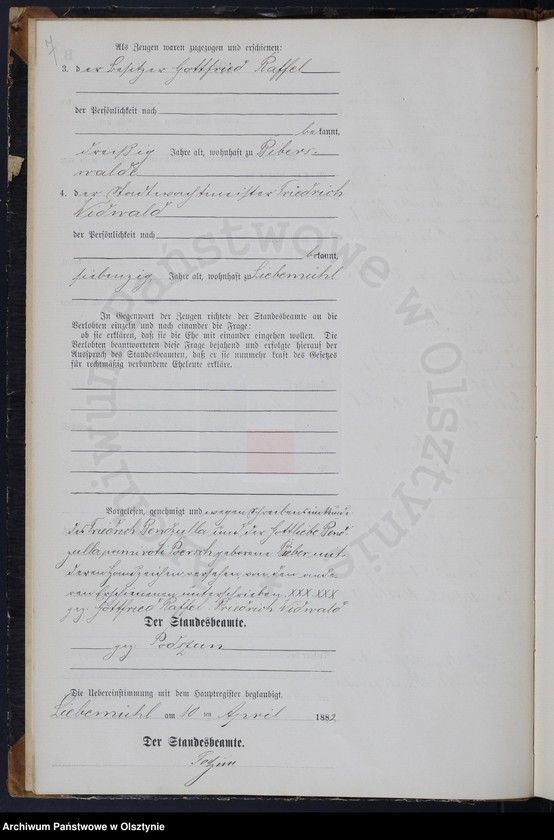 7
Als Zeugen waren zugezogen und erschienen:
3. der Besitzer Gottfried Raffel
der Persönlichkeit nach
bekannt,
dreißig Jahre alt, wohnhaft zu Bibers-
walde
4. der Stadtwachtmeister Friedrich
Widwald
der Persönlichkeit nach
bekannt,
siebenzig Jahre alt, wohnhaft zu Liebemühl
In Gegenwart der Zeugen richtete der Standesbeamte an die
Verlobten einzeln und nach einander die Frage:
ob sie erklären, daß sie die Ehe mit einander eingehen wollen. Die
Verlobten beantworteten diese Frage bejahend und erfolgte hierauf der
Ausspruch des Standesbeamten, daß er sie nunmehr kraft des Gesetzes
für rechtmäßig verbundene Eheleute erkläre.
Vorgelesen, genehmigt und wegen Schreibensunkunde
des Friedrich und der Gottliebe
geborene mit
deren Handzeichen versehen, von den ande-
ren Erschienenen unterschrieben XXX XXX
gez. Gottfried Raffel. Friedrich Widwald
Der Standesbeamte.
gez. Podszun
Die Uebereinstimmung mit dem Hauptregister beglaubigt.
Liebemühl am 10 ten April 1882
Der Standesbeamte.
Archiwum Państwowe w Olsztynie
Archiwum Państwowe w Olsztynie